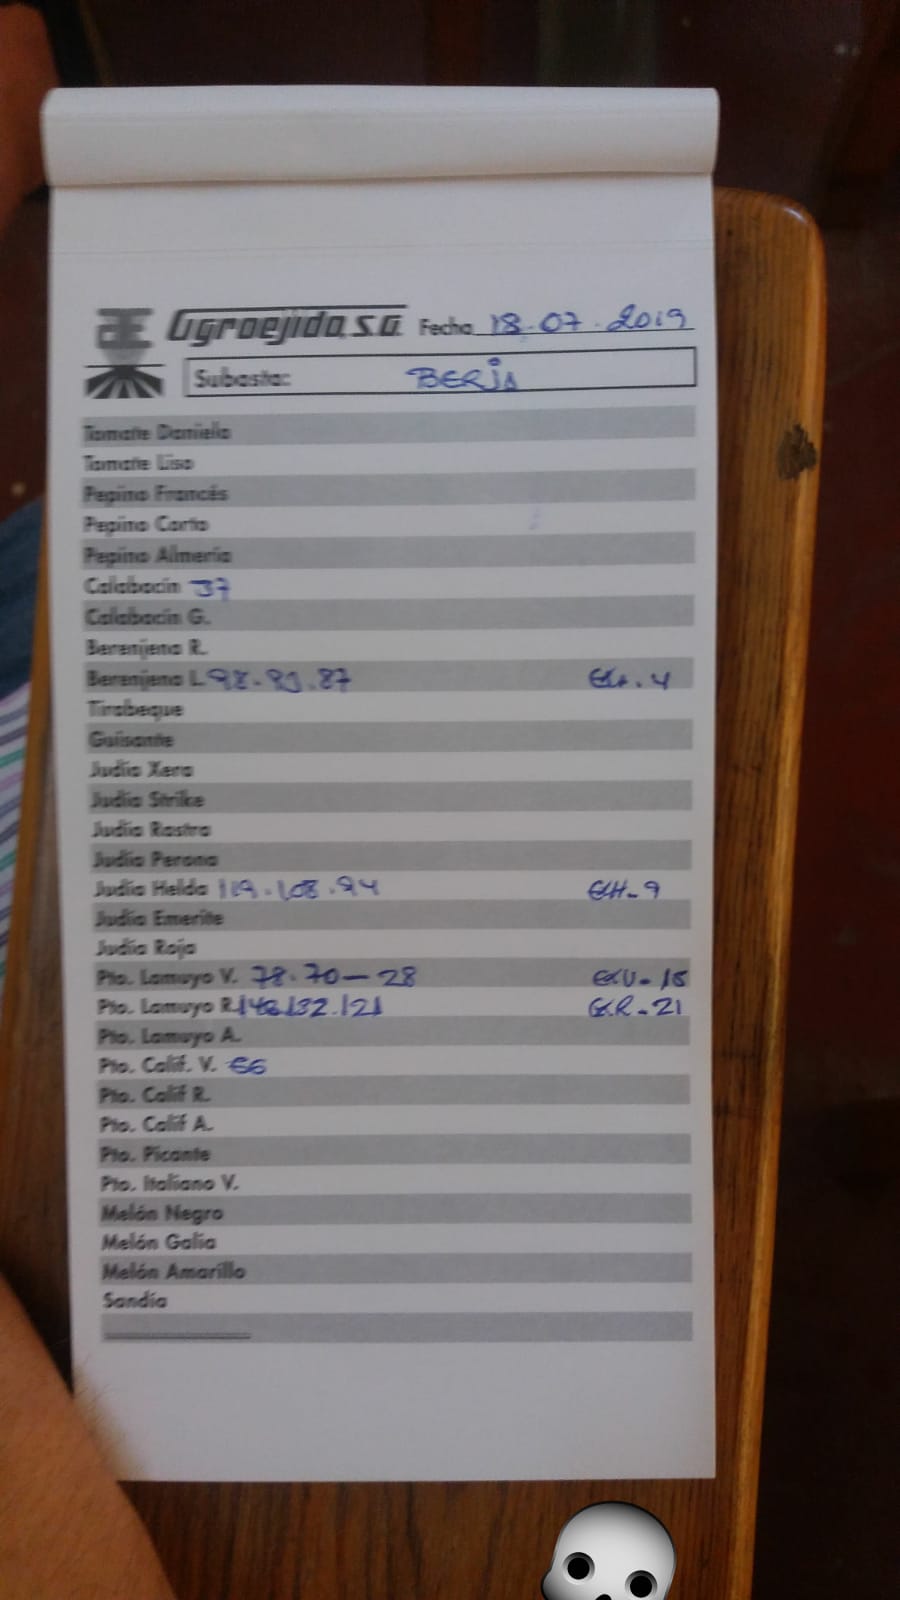 Agroejido, S.A. Fecha 18.07.2019
Subasta: BERJA
Tomate Daniela
Tomate Liso
Pepino Francés
Pepino Corto
Pepino Almería
Calabacín 37
Calabacín G.
Berenjena R.
Berenjena L. 98.91.87
Tirabeque
Guisante
Judía Xera
Judía Strike
Judía Rastra
Judía Perona
Judía Helda 119.108.94
Judía Emerite
Judía Roja
Pto. Lamuyo V. 78.70-28
Pto. Lamuyo R. 146.132.121
Pto. Lamuyo A.
Pto. Calif. V. 66
Pto. Calif R.
Pto. Calif A.
Pto. Picante
Pto. Italiano V.
Melón Negro
Melón Galia
Melón Amarillo
Sandía